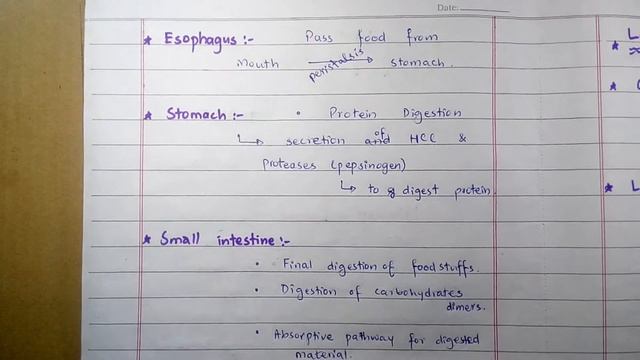 Date:
★ Esophagus :- Pass food from
mouth peristalsis → stomach.
★ Stomach :- • Protein Digestion
↳ secretion of HCl &
Proteases (pepsinogen)
↳ to digest protein
★ Small intestine :-
• Final digestion of food stuffs.
• Digestion of carbohydrates
dimers.
• Absorptive pathway for digested
material.
★ L
★
★ L